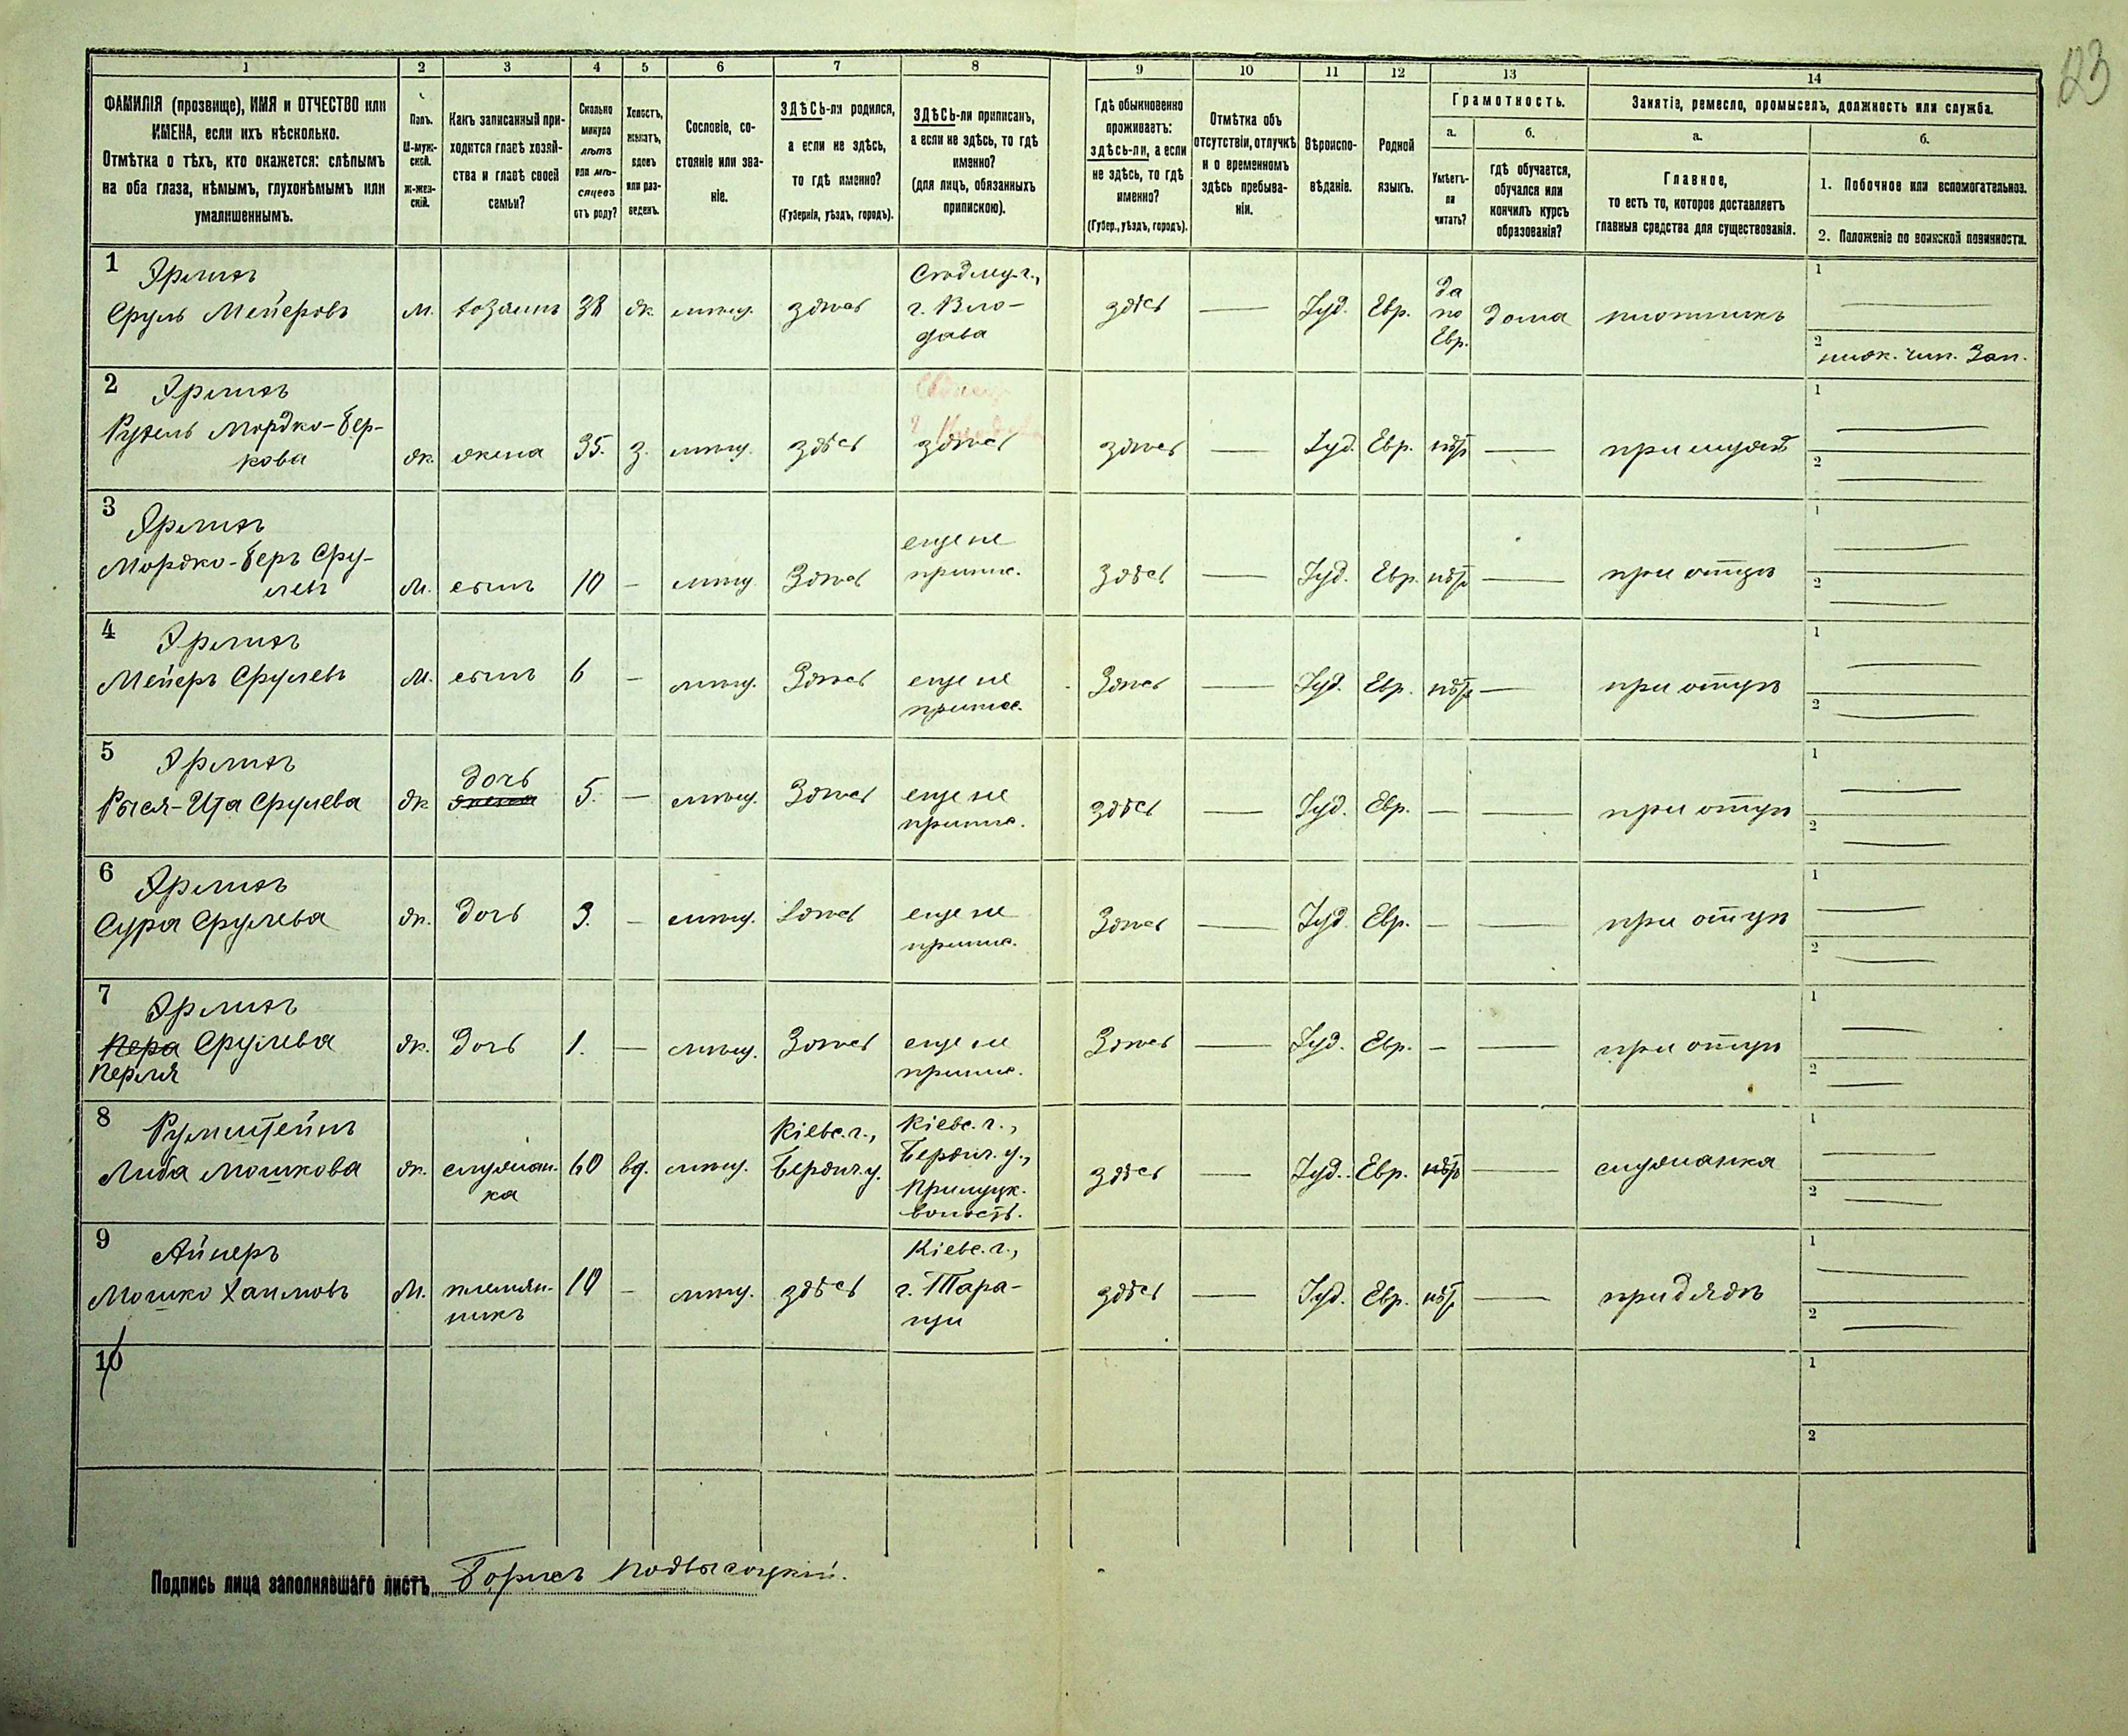 23
1 2 3 4 5 6 7 8 9 10 11 12 13 14
ФАМИЛІЯ (прозвище), ИМЯ и ОТЧЕСТВО или
ИМЕНА, если ихъ нѣсколько.
Отмѣтка о тѣхъ, кто окажется: слѣпымъ
на оба глаза, нѣмымъ, глухонѣмымъ или
умалишеннымъ.
Полъ.
М-муж-
ской.
ж-жен-
скій.
Какъ записанный при-
ходится главѣ хозяй-
ства и главѣ своей
семьи?
Сколько
минуло
лѣтъ
или мѣ-
сяцевъ
отъ роду?
Холостъ,
женатъ,
вдовъ
или раз-
веденъ.
Сословіе, со-
стояніе или зва-
ніе.
ЗДѢСЬ-ли родился,
а если не здѣсь,
то гдѣ именно?
(Губернія, уѣздъ, городъ).
ЗДѢСЬ-ли приписанъ,
а если не здѣсь, то гдѣ
именно?
(для лицъ, обязанныхъ
припискою).
Гдѣ обыкновенно
проживаетъ:
здѣсь-ли, а если
не здѣсь, то гдѣ
именно?
(Губер., уѣздъ, городъ).
Отмѣтка объ
отсутствіи, отлучкѣ
и о временномъ
здѣсь пребыва-
ніи.
Вѣроиспо-
вѣданіе.
Родной
языкъ.
Грамотность.
а.
Умѣетъ-
ли
читать?
б.
гдѣ обучается,
обучался или
кончилъ курсъ
образованія?
Занятіе, ремесло, промыселъ, должность или служба.
а.
Главное,
то есть то, которое доставляетъ
главныя средства для существованія.
б.
1. Побочное или вспомогательное.
2. Положеніе по воинской повинности.
1
Сруль Мейеровъ
м. хозяинъ 38 ж. мѣщ. здѣсь
г. Вло-
дава
здѣсь — Іуд. Евр.
да
по
Евр.
дома плотникъ
1 —
2 нижн. чин. Зап.
2
Рухель Мордко-Бер-
кова
ж. жена 35. з. мѣщ. здѣсь здѣсь здѣсь — Іуд. Евр. нѣт — при мужѣ
1 —
2 —
3
Мордко-Беръ Сру-
левъ
м. сынъ 10 — мѣщ. Здѣсь
еще не
припис.
Здѣсь — Іуд. Евр. нѣт — при отцѣ
1 —
2 —
4
Мейеръ Срулевъ
м. сынъ 6 — мѣщ. Здѣсь
еще не
припис.
Здѣсь — Іуд. Евр. нѣт — при отцѣ
1 —
2 —
5
Рыся-Ита Срулева
ж дочь жена 5. — мѣщ. Здѣсь
еще не
припис.
здѣсь — Іуд. Евр. — — при отцѣ
1 —
2 —
6
Сура Срулева
ж. дочь 3. — мѣщ. Здѣсь
еще не
припис.
Здѣсь — Іуд. Евр. — — при отцѣ
1 —
2 —
7
Пера Срулева
Перля
ж. дочь 1. — мѣщ. Здѣсь
еще не
припис.
Здѣсь — Іуд. Евр. — — при отцѣ
1 —
2 —
8
Либа Мошкова
ж. служан-
ка
60 вд. мѣщ.
Кіевс. г.,
Бердич. у.
Кіевс. г.,
Бердич. у.,
Прилуцк.
волость.
здѣсь — Іуд. Евр. нѣт — служанка
1 —
2 —
9
Айнеръ
Мошко Хаимовъ
м. племян-
никъ
10 — мѣщ. здѣсь
Кіевс. г.,
г. Тара-
щи
здѣсь — Іуд. Евр. нѣт — при дядѣ
1 —
2 —
10
1
2
Подпись лица заполнявшаго листъ Борисъ Подвысоцкій.